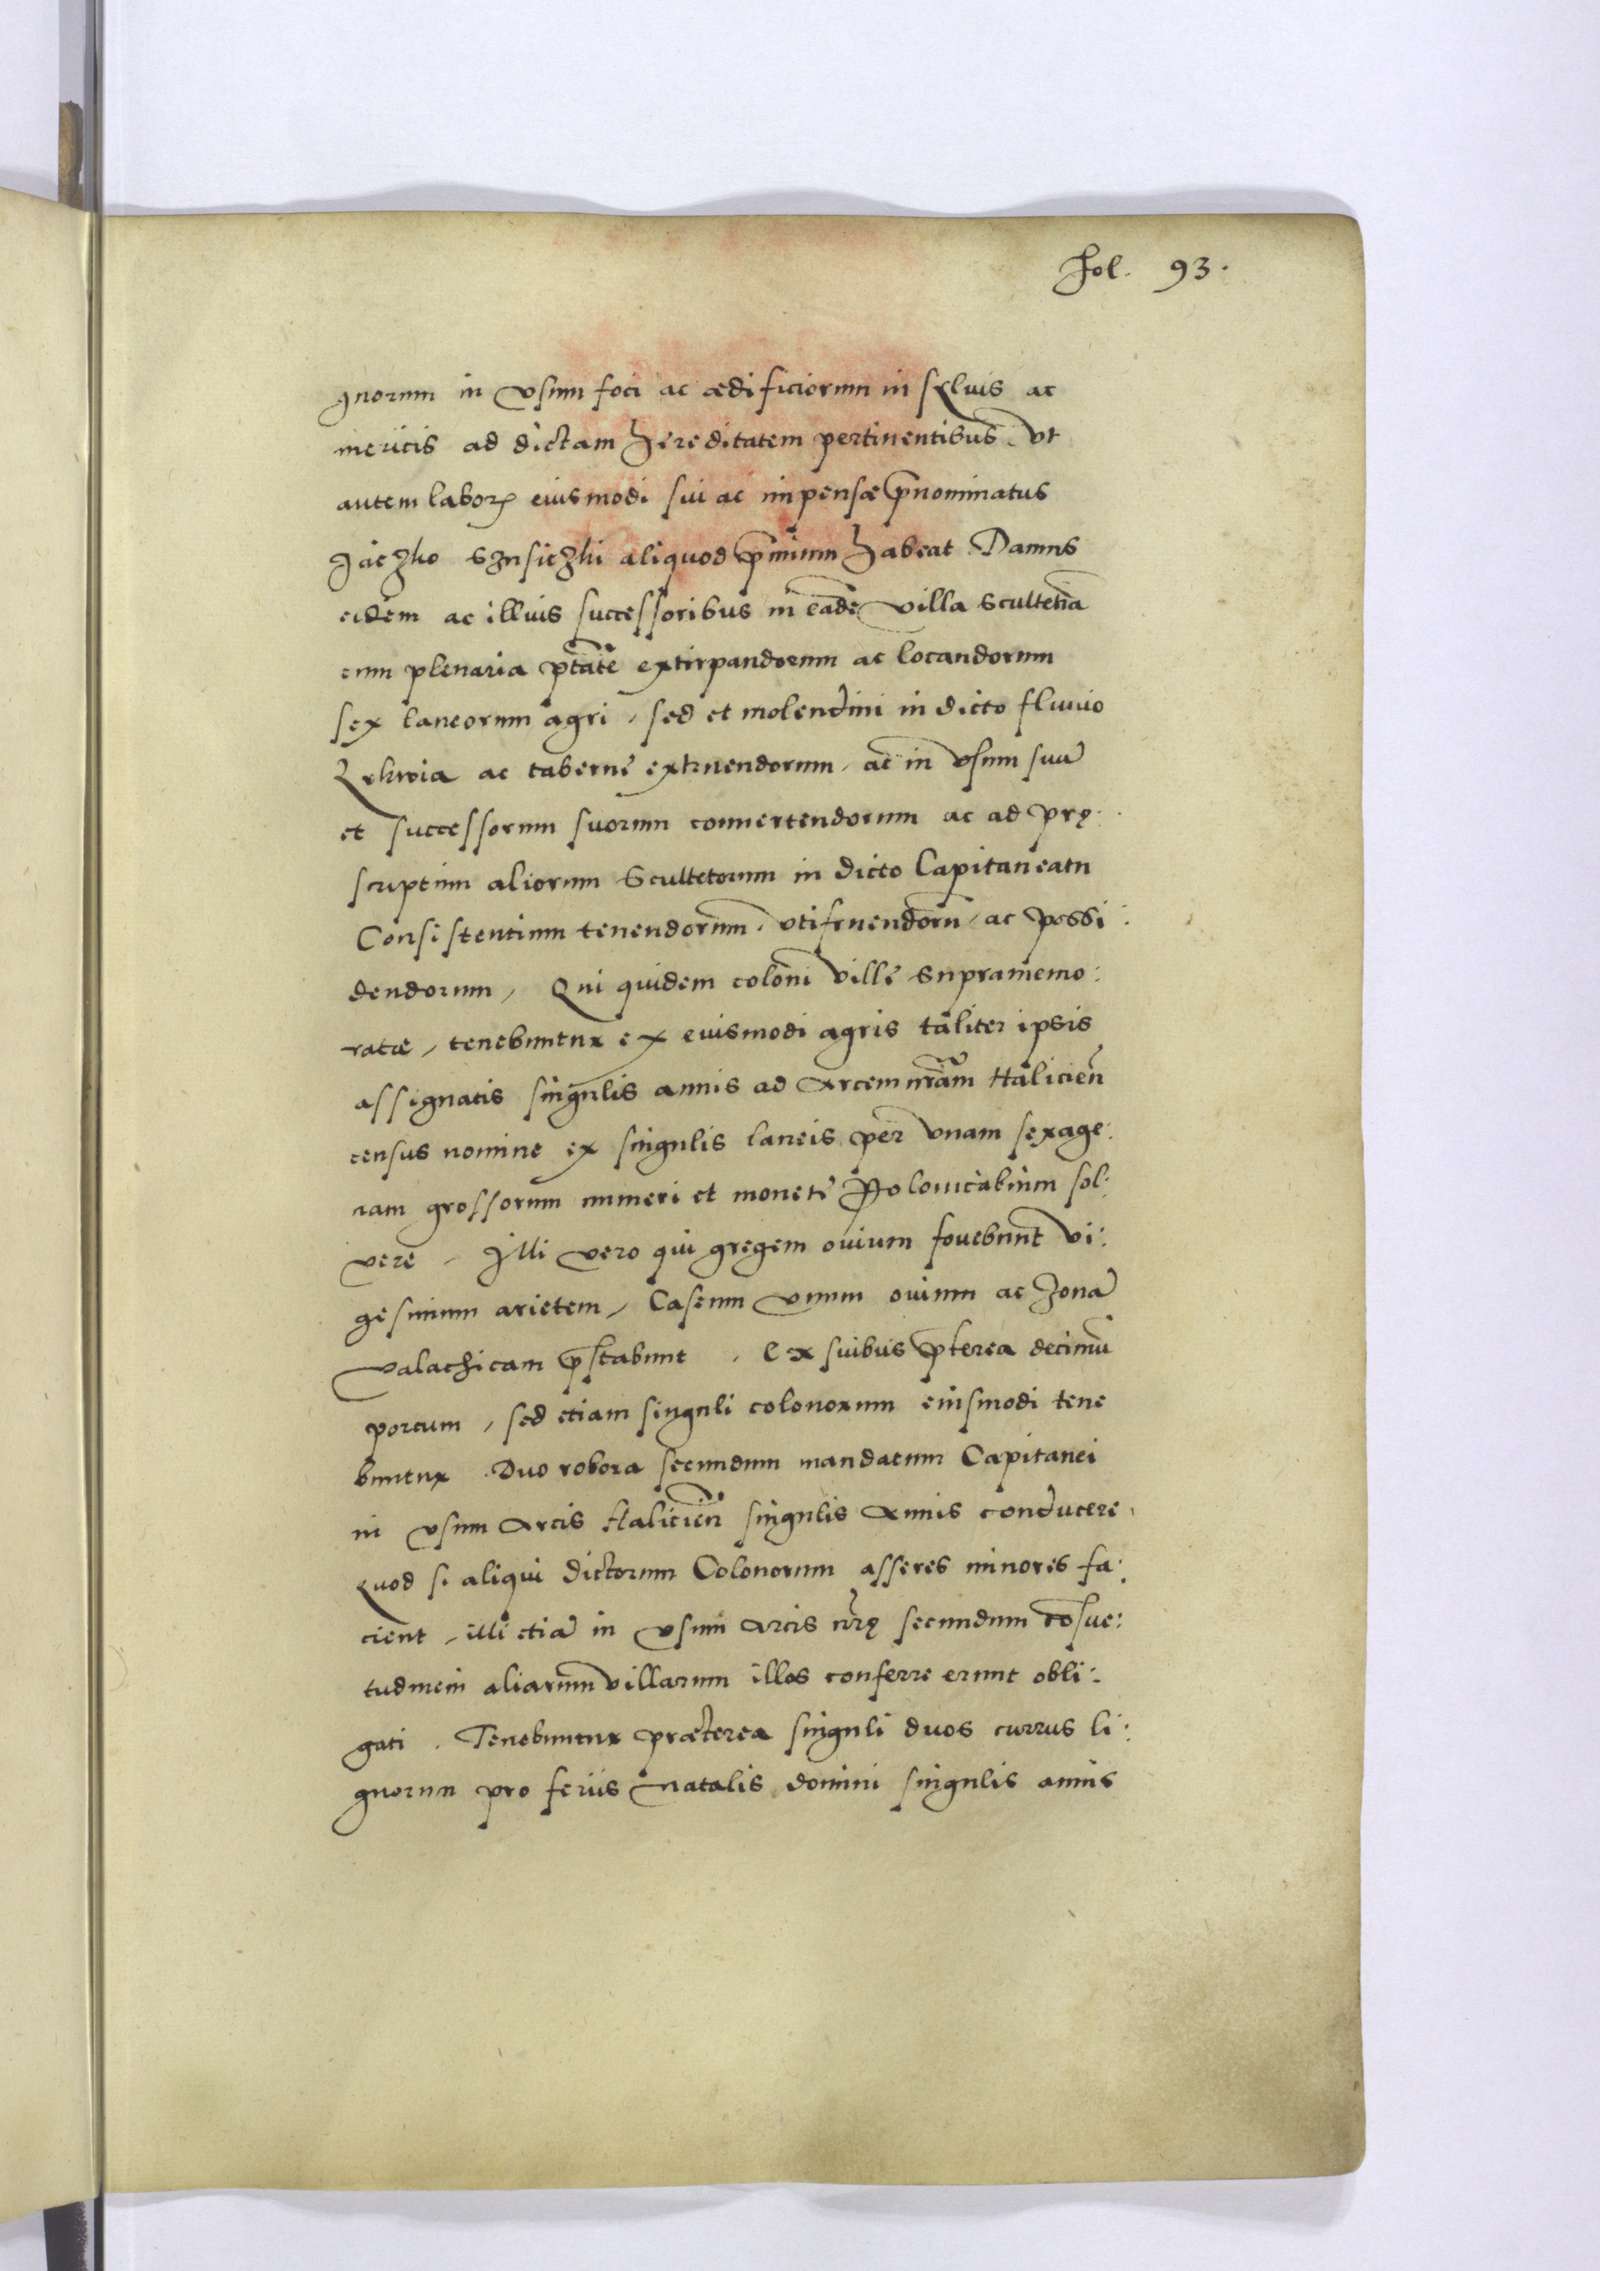 Fol. 93.
gnorum in vsum foci ac ædificiorum in sylvis ac
mericis ad dictam hereditatem pertinentibus. vt
autem labor[um] eiusmodi sui ac impensæ p̄nominatus
Jaczko aliquod p̄mium habeat Damus
eidem ac illius successoribus in eadē villa Scultetiā
cum plenaria ptātē extirpandorum ac locandorum
sex laneorum agri, sed et molendini in dicto fluuio
ac tabernę extruendorum, ac in vsum suū
et successorum suorum conuertendorum ac ad prę:
scriptum aliorum Scultetorum in dicto Capitaneatu
Consistentium tenendorum, vtifruendorū, ac possi:
dendorum, Qui quidem coloni villę supramemo:
ratæ, tenebuntur ex eiusmodi agris taliter ipsis
assignatis singulis annis ad Arcem nrām Halicień
census nomine ex singulis laneis per vnam sexage:
nam grossorum numeri et monetę Polonicalium sol:
vere, Illi vero qui gregem ouium fouebunt vi:
gesimum arietem, Caseum vnum ouium ac Zonā
valachicam p̄stabunt, Ex suibus p̄terea decimū
porcum, sed etiam singuli colonorum eiusmodi tene
buntur Duo robora secundum mandatum Capitanei
in vsum Arcis Halicień singulis Annis conducere.
Quod si aliqui dictorum Colonorum asseres minores fa:
cient, illi etiā in vsum Arcis nrę secundum cōsue:
tudinem aliarum villarum illos conferre erunt obli:
gati. Tenebuntur præterea singuli duos currus li:
gnorum pro feriis Natalis domini singulis annis